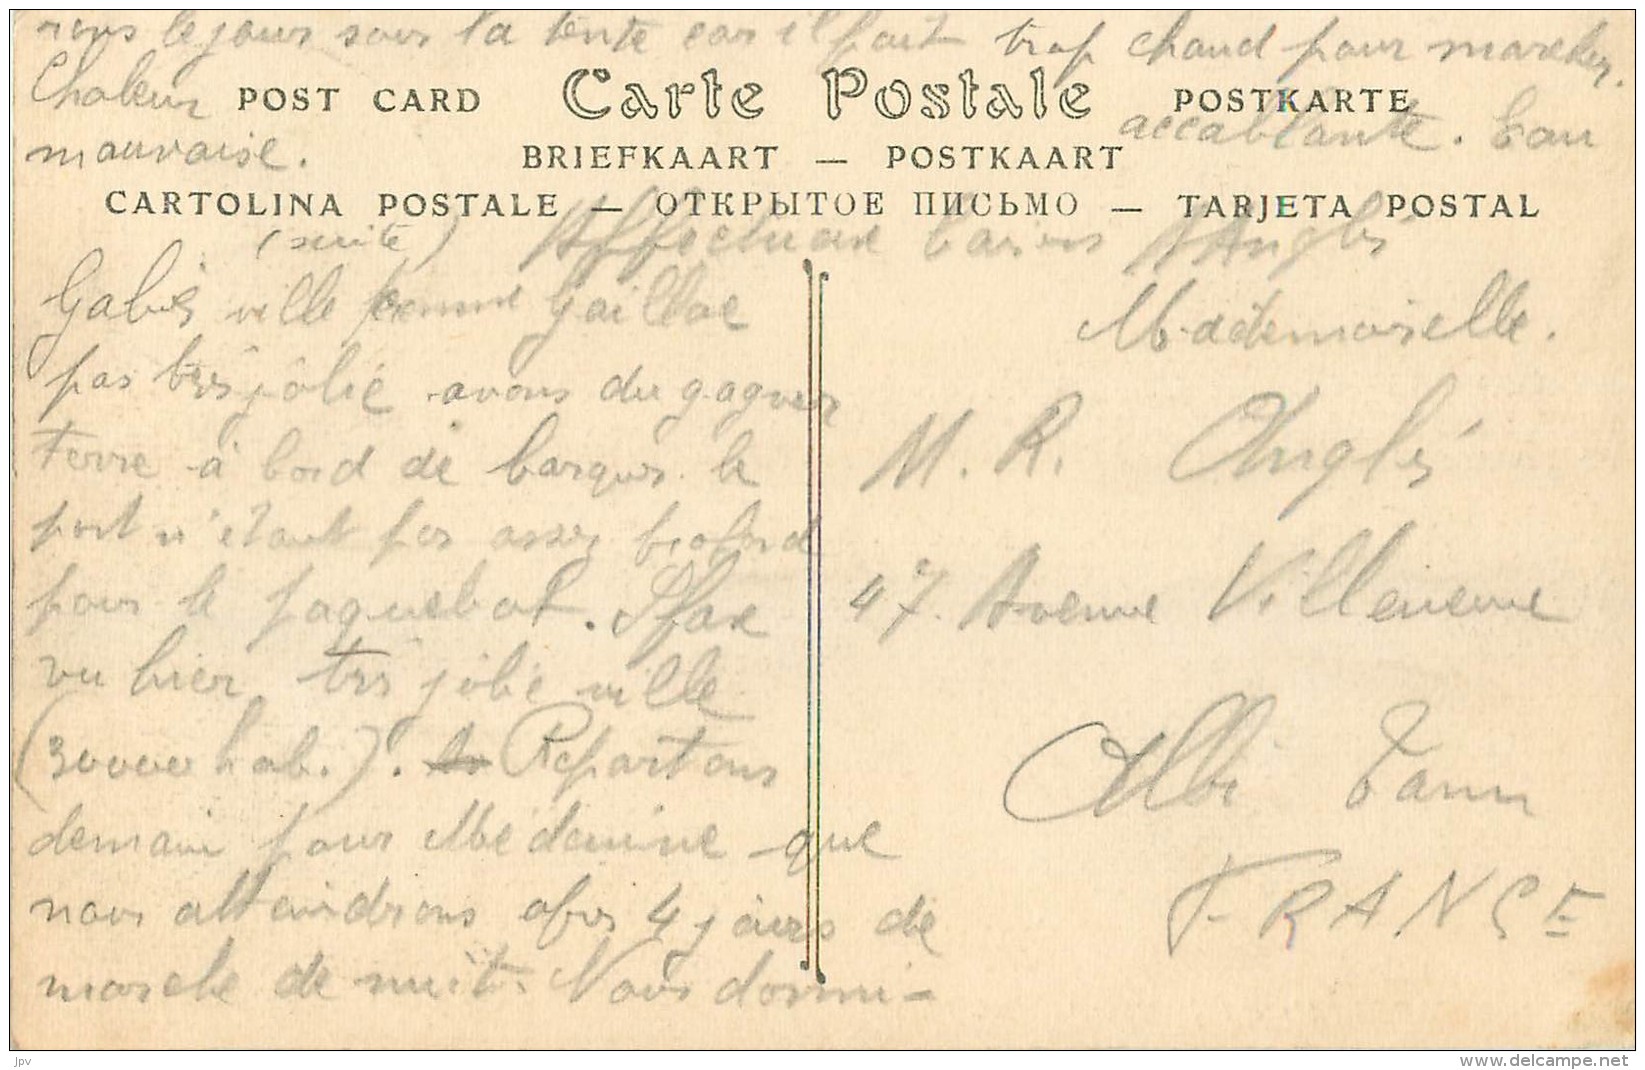 rons le jour sous la tente car il fait trop chaud pour marcher.
Chaleur
POST CARD Carte Postale POSTKARTE
accablante. Eau
mauvaise.
BRIEFKAART — POSTKAART
CARTOLINA POSTALE — ОТКРЫТОЕ ПИСЬМО — TARJETA POSTAL
(suite) Affectueux baisers Anglès
Gabès ville comme Gaillac
pas très jolie avons du gagner
terre à bord de barques le
port n'étant pas assez profond
pour le paquebot. Sfax
vu hier très jolie ville
(30000 hab.). Repartons
demain pour Médenine que
nous atteindrons après 4 jours de
marche de nuit. Nous dormi-
Mademoiselle.
M. R. Anglès
47. Avenue Villeneuve
Albi Tarn
FRANCE
jpv
www.delcampe.net